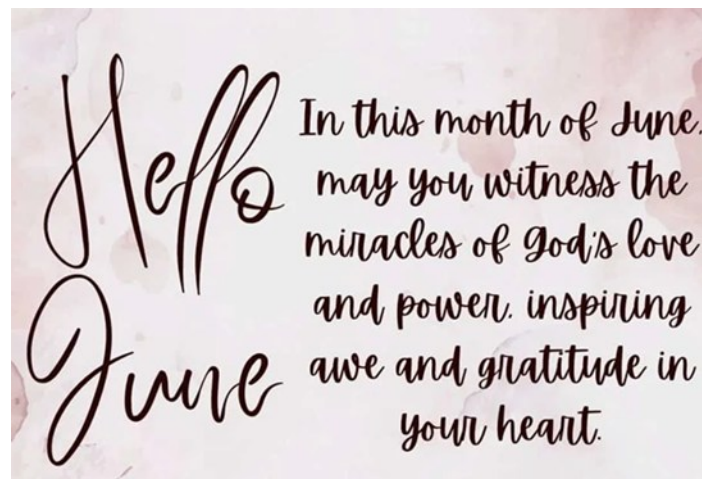 Hello
June
In this month of June,
may you witness the
miracles of God's love
and power, inspiring
awe and gratitude in
your heart.